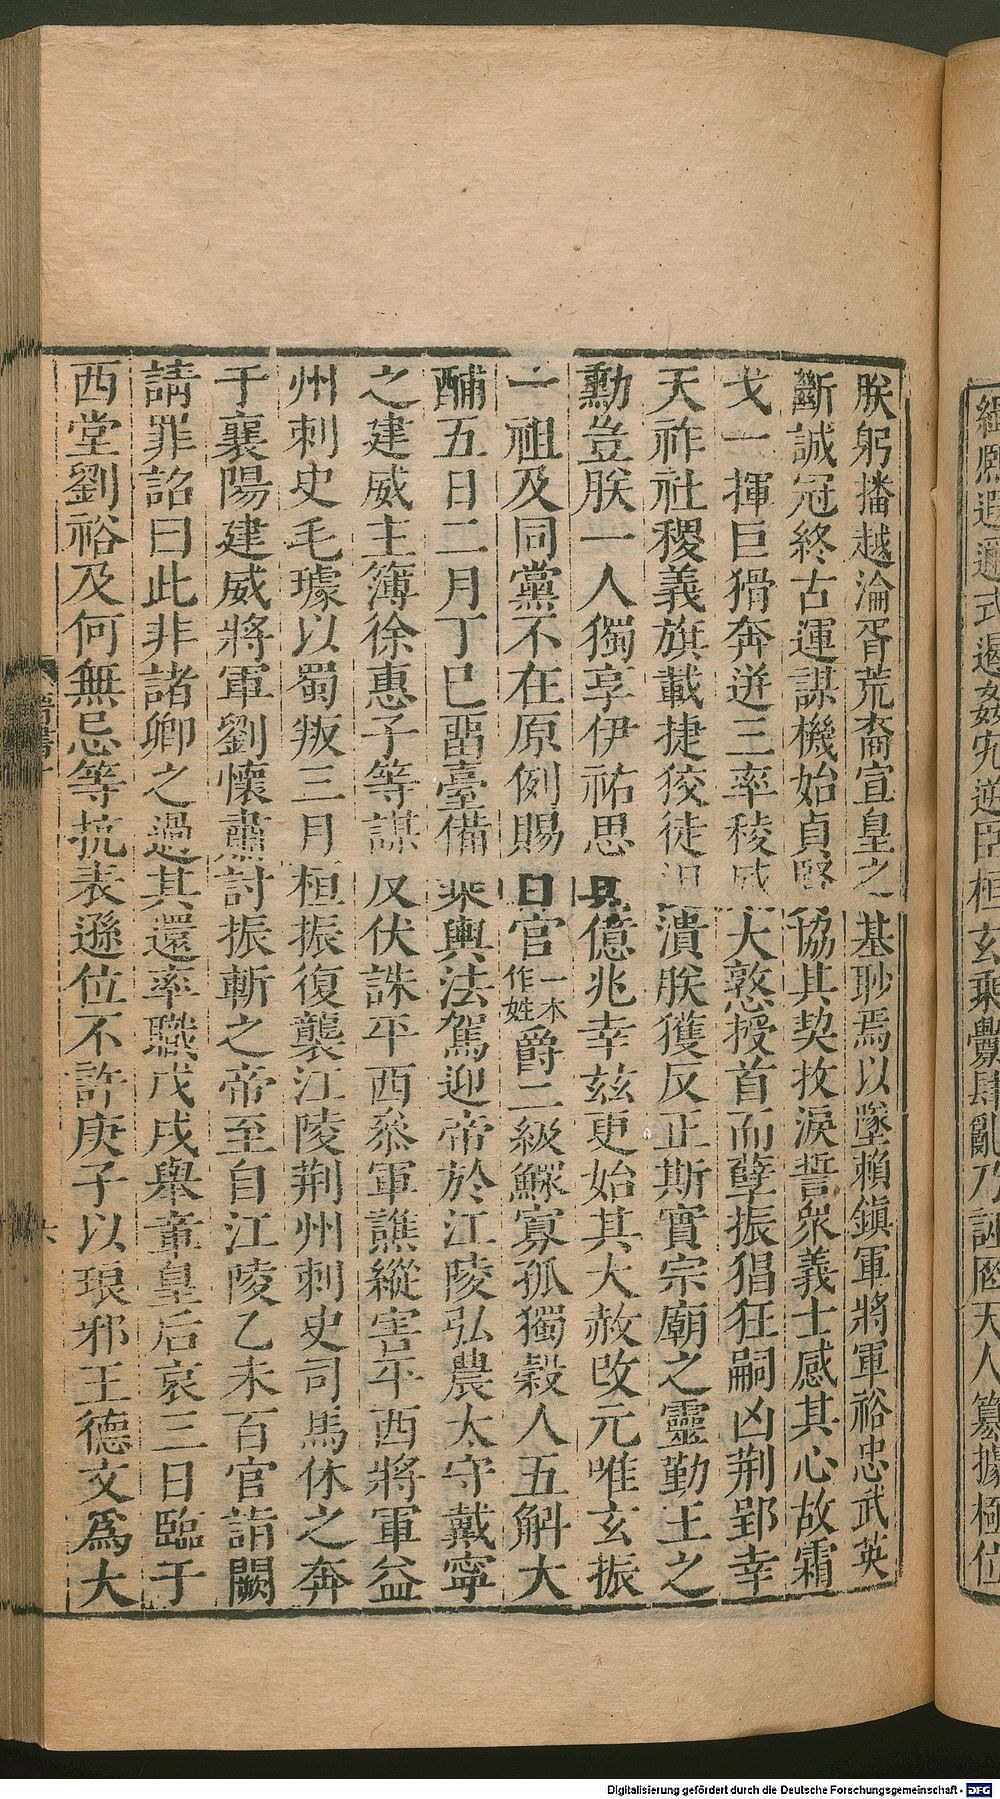 緝熙遐邇式遏姦宄逆臣桓玄乘釁肆亂乃誣罔天人簒據極位
朕躬播越淪胥荒裔宣皇之基眇焉以墜賴鎮軍將軍裕忠武英
斷誠冠終古運謀機始貞賢協其契抆淚誓衆義士感其心故霜
戈一揮巨猾奔迸三率稜威大憝授首而孽振猖狂嗣凶荆郢幸
天祚社稷義旗載捷狡徒沮潰朕獲反正斯實宗廟之靈勤王之
勳豈朕一人獨享伊祐思與億兆幸兹更始其大赦改元唯玄振
一祖及同黨不在原例賜百官一本作姓爵二級鰥寡孤獨穀人五斛大
酺五日二月丁巳畱臺備乘輿法駕迎帝於江陵弘農太守戴寧
之建威主簿徐惠子等謀反伏誅平西叅軍譙縱害平西將軍益
州刺史毛璩以蜀叛三月桓振復襲江陵荆州刺史司馬休之奔
于襄陽建威將軍劉懷肅討振斬之帝至自江陵乙未百官詣闕
請罪詔曰此非諸卿之過其還率職戊戌舉章皇后哀三日臨于
西堂劉裕及何無忌等抗表遜位不許庚子以琅邪王德文爲大
晉書十
六
Digitalisierung gefördert durch die Deutsche Forschungsgemeinschaft - DFG